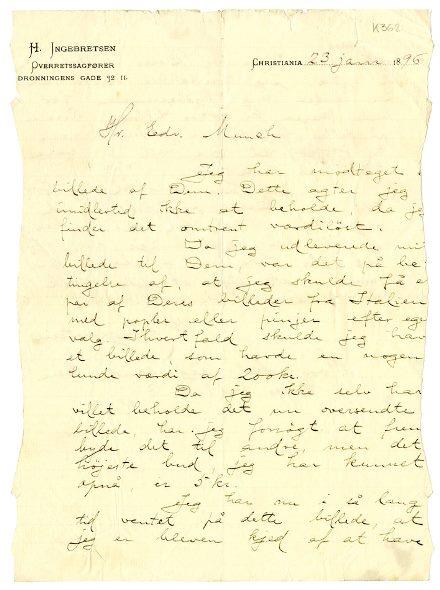 K362
H. INGEBRETSEN
OVERRETSSAGFØRER
DRONNINGENS GADE 12 II.
CHRISTIANIA 23 jan 1896
Hr. Edv. Munch
Jeg har modtaget
billede af Dem. Dette agter jeg
imidlertid ikke at beholde, da jeg
finder det omtrent værdiløst.
Da jeg udleverede mit
billede til Dem, var det på be-
tingelse af, at jeg skulde få e
par af Deres billeder fra Italien
med popler eller pinjer efter eget
valg. Ihvertfald skulde jeg have
et billede, som havde en nogen-
lunde værdi af 200 kr.
Da jeg ikke selv har
villet beholde det nu oversendte
billede, har jeg forsøgt at frem-
byde det til andre, men det
højeste bud, jeg har kunnet
opnå, er 5 kr.
Jeg har nu i så lang
tid ventet på dette billede, at
jeg er bleven kjed af at have